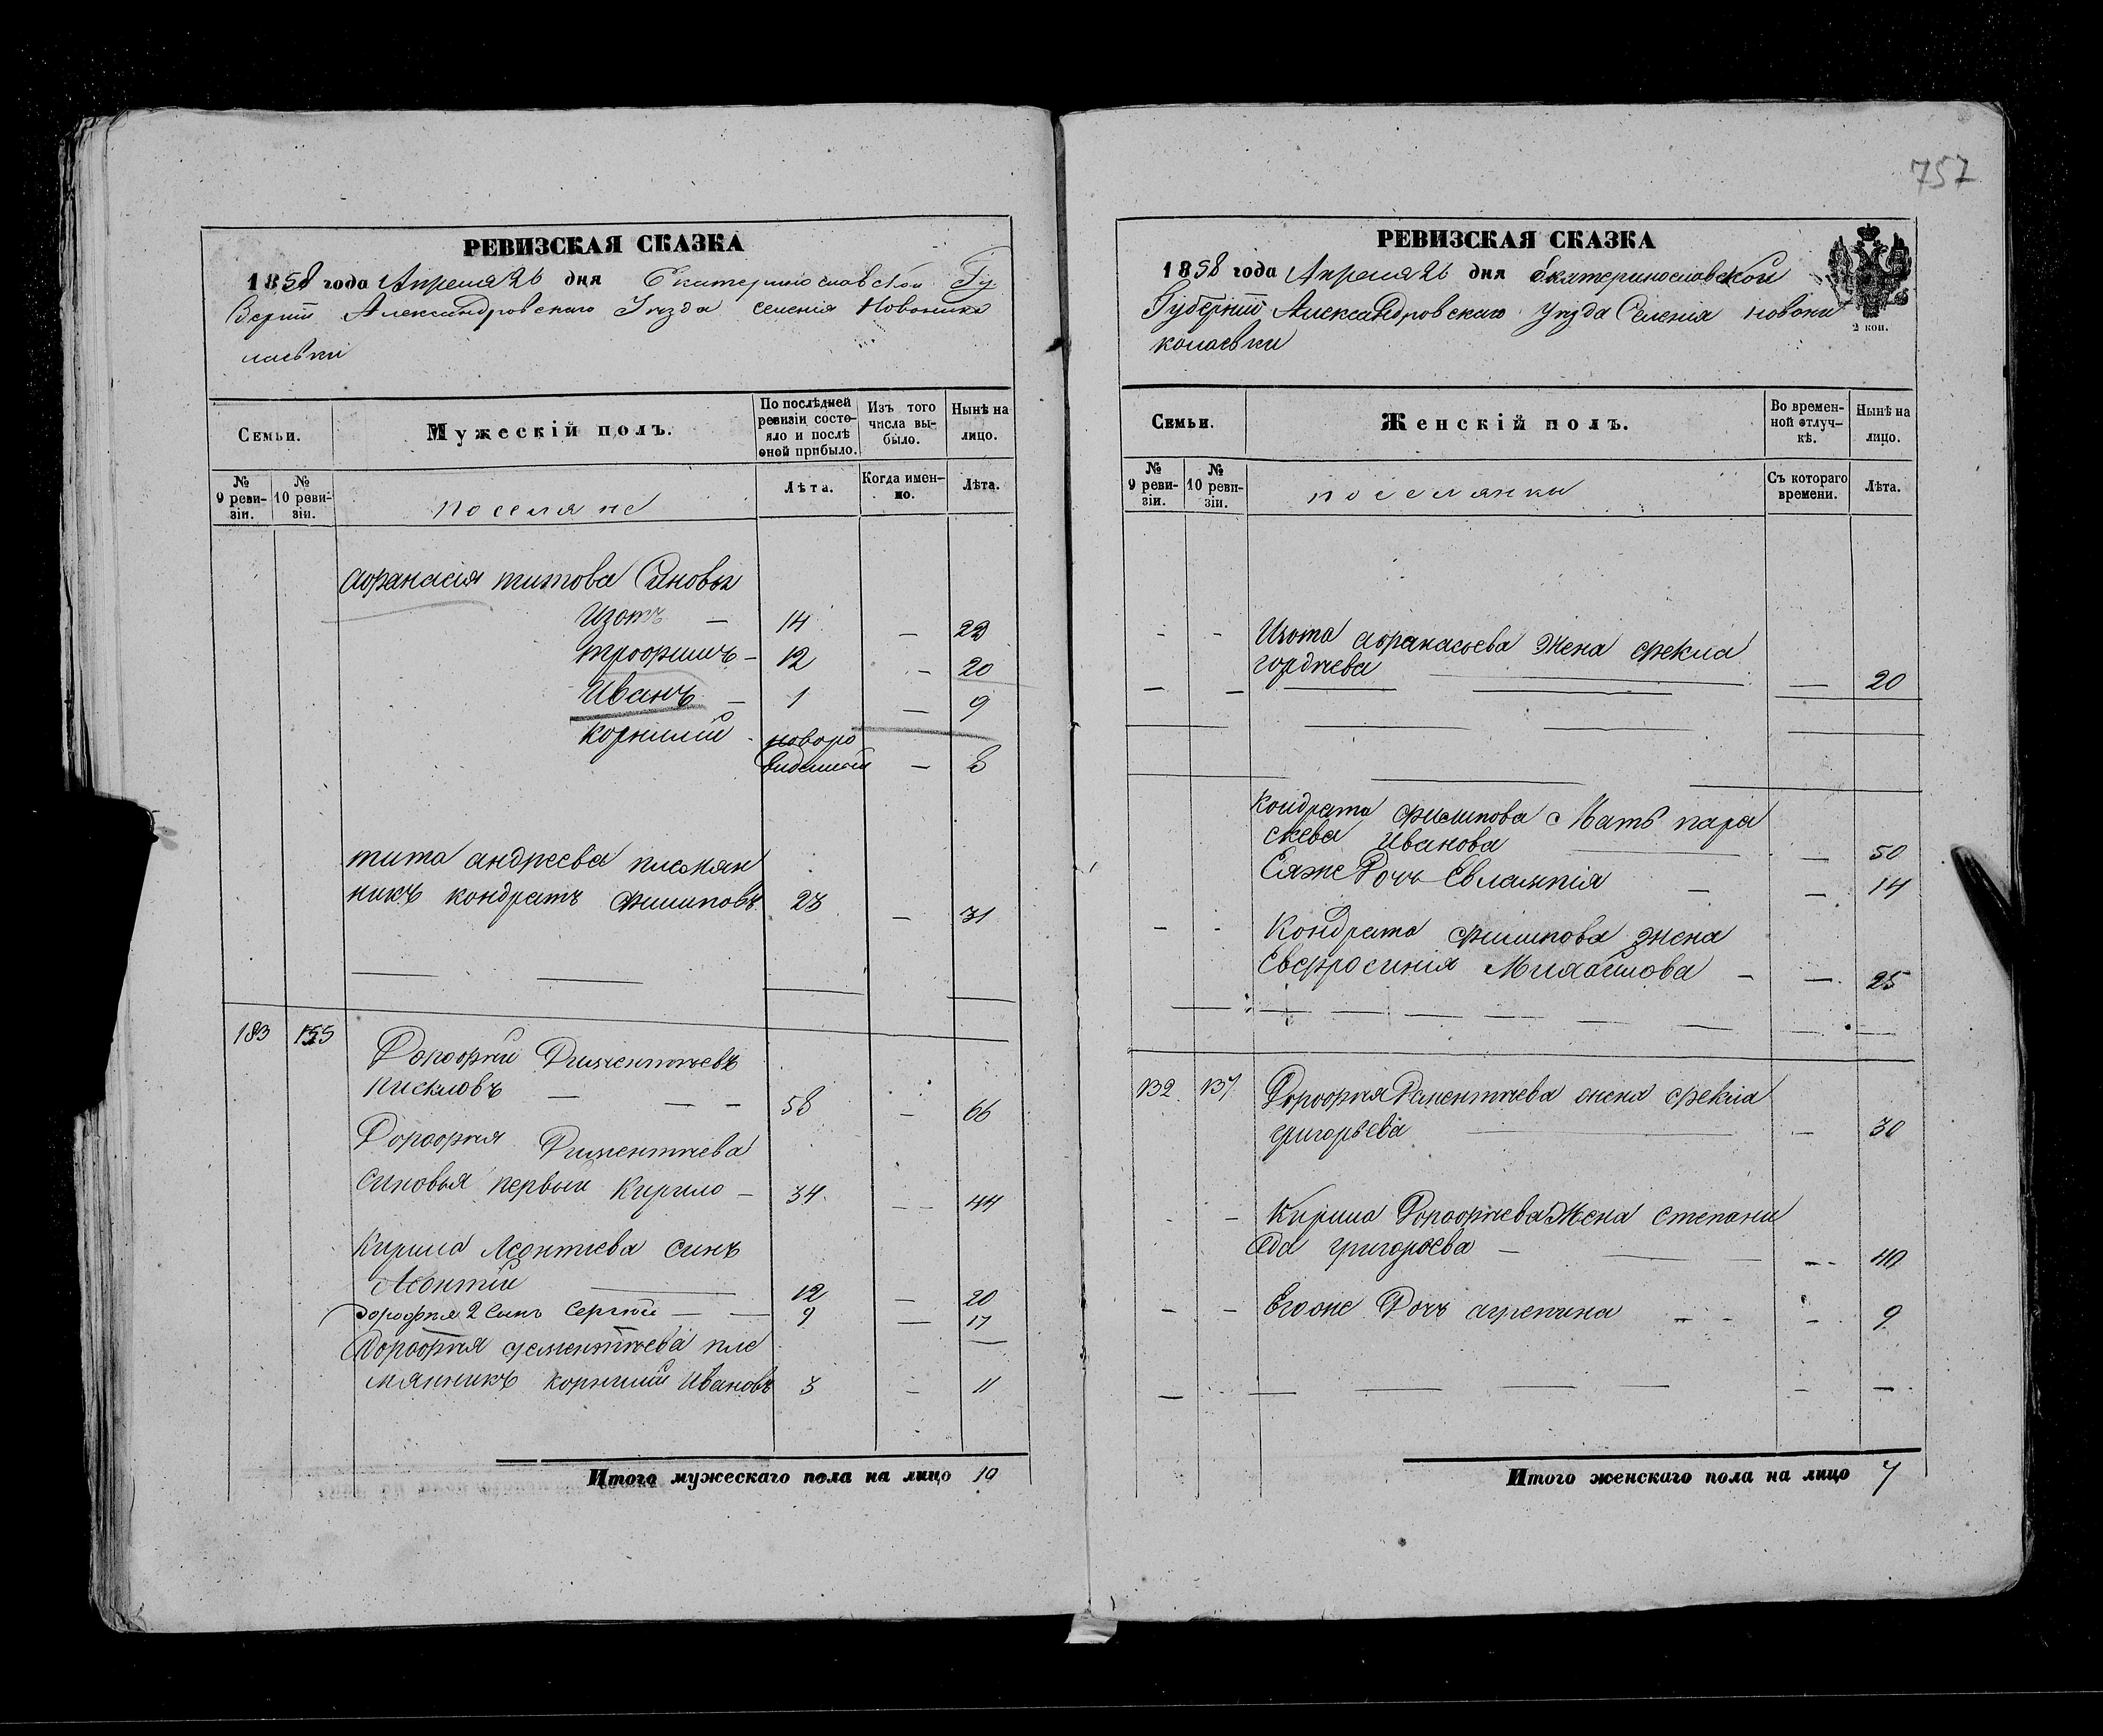 757
РЕВИЗСКАЯ СКАЗКА
1858 года Апреля 26 дня Екатеринославской Гу
Берніи Александровскаго Уѣзда селенія Новоника
лаевки
Семьи.
Мужескій полъ.
По послѣдней ревизіи состояло и послѣ оной прибыло.
Изъ того числа выбыло.
Нынѣ на лицо.
№ 9 ревизіи.
№ 10 ревизіи.
поселяне
Лѣта.
Когда именно.
Лѣта.
афанасія титова Сыновы
Изотъ — 14 — 22
трофимъ — 12 — 20
Иванъ — 1 — 9
корнилій новоро
виденый — 8
тита андреева племян
никъ кондратъ Филиповъ 23 — 31
183 155 Дорофѣй Диментьевъ
писклювъ — — — 58 — 66
Дорофѣя Диментѣева
синовья первый Кирило — 34 — — 44
Кирила Леонтиева синъ
Леонтій 12 — 20
Дорофѣя 2 Сынъ Сергѣй — — 9 — 17
Дорофѣя дементѣева пле
мянникъ корнилій Ивановъ 3 — 11
Итого мужескаго пола на лицо 10
РЕВИЗСКАЯ СКАЗКА
1858 года Апреля 26 дня Екатеринославской
Губерніи Александровскаго Уѣзда Селенія новони
колаевки
2 коп.
Семьи.
Женскій полъ.
Во временной отлучкѣ.
Нынѣ на лицо.
№ 9 ревизіи.
№ 10 ревизіи.
поселянки
Съ котораго времени.
Лѣта.
Изота афанасьева Жена Фекла
гордѣева — 20
Кондрата Филипова Мать пара
скева Иванова — 50
Еяже Дочь Евлампія — — 14
Кондрата Филипова жена
Евфросинія Михайлова — — 25
132 137 Дорофѣя Дементѣева жена Фекла
григорьева — 30
Кирила Дорофѣева Жена Степани
да григорьева — 40
Егоже Дочь агрепина — 9
Итого женскаго пола на лицо 7